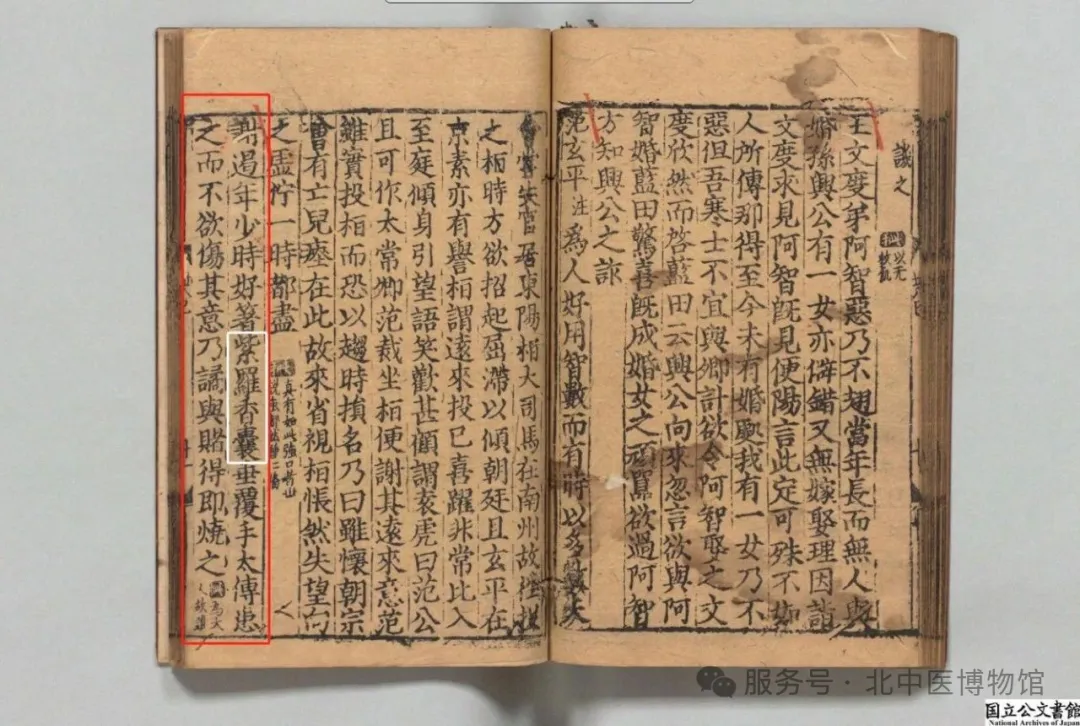 之
王文度弟阿智惡乃不翅當年長而無人與
婚孫興公有一女亦僻錯又無嫁娶理因詣
文度求見阿智既見便陽言此定可殊不如
人所傳那得至今未有婚處我有一女乃不
惡但吾寒士不宜與卿計欲令阿智娶之文
度欣然而啓藍田云興公向來忽言欲與阿
智婚藍田驚喜既成婚女之頑嚚欲過阿智
方知興公之詐
范玄平注為人好用智數而有時以多數失
會嘗失官居東陽桓大司馬在南州故往投
之桓時方欲招起屈滯以傾朝廷且玄平在
京素亦有譽桓謂遠來投已喜躍非常比入
至庭傾身引望語笑歡甚顧謂袁虎曰范公
且可作太常卿范裁坐桓便謝其遠來意范
雖實投桓而恐以趨時損名乃曰雖懷朝宗
會有亡兒瘞在此故來省視桓悵然失望向
之虛佇一時都盡
真有如此強口
謝遏年少時好著紫羅香囊垂覆手太傅患
之而不欲傷其意乃譎與賭得即燒之
服务号·北中医博物馆
国立公文書館
National Archives of Japan